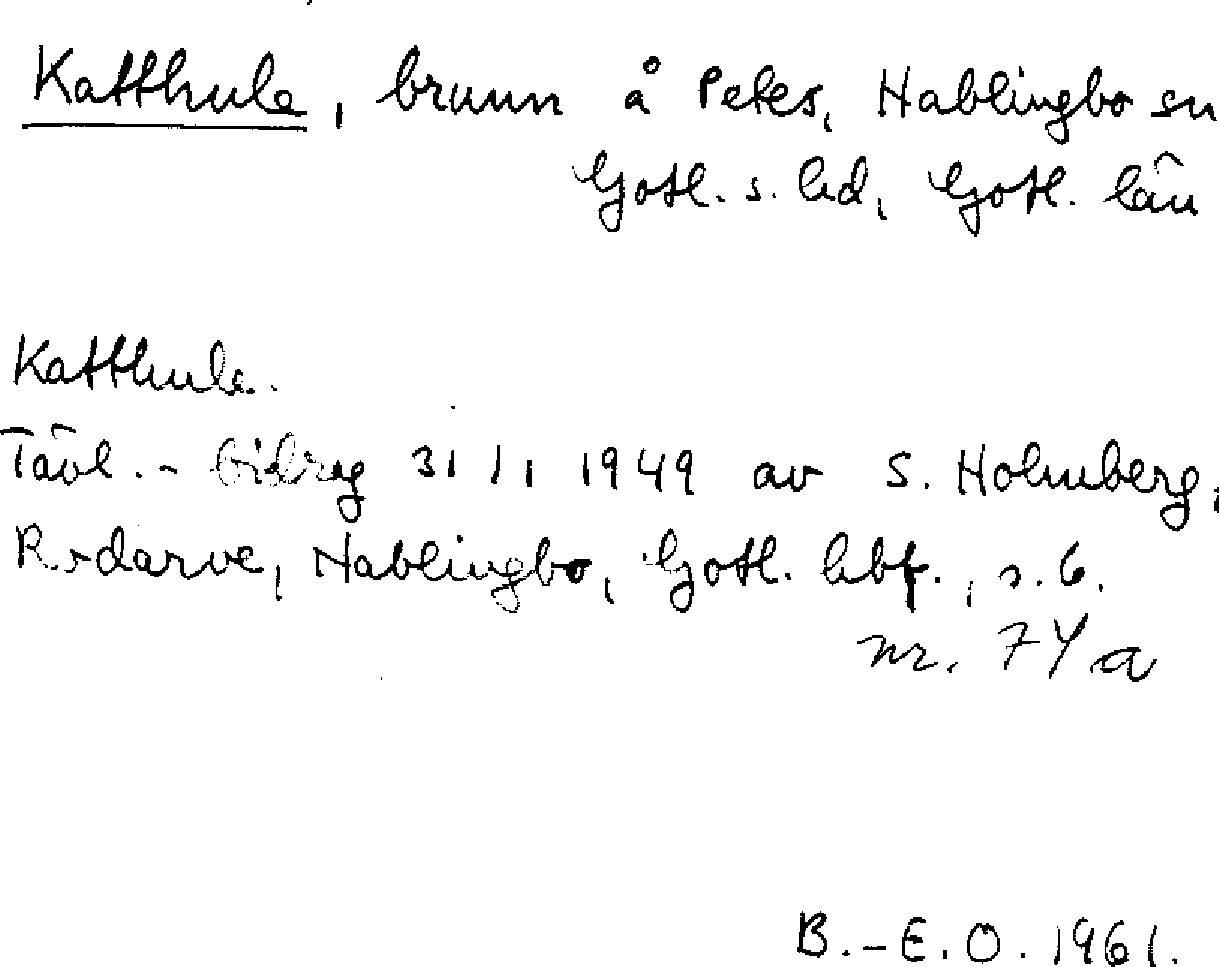 Katthule, brunn å Petes, Hablingbo sn
Gotl. s. hd, Gotl. län
Katthule.
Tävl.-bidrag 31/1 1949 av S. Holmberg,
Rodarve, Hablingbo, Gotl. hbf., s. 6.
nr. 74 a
B.-E. O. 1961.